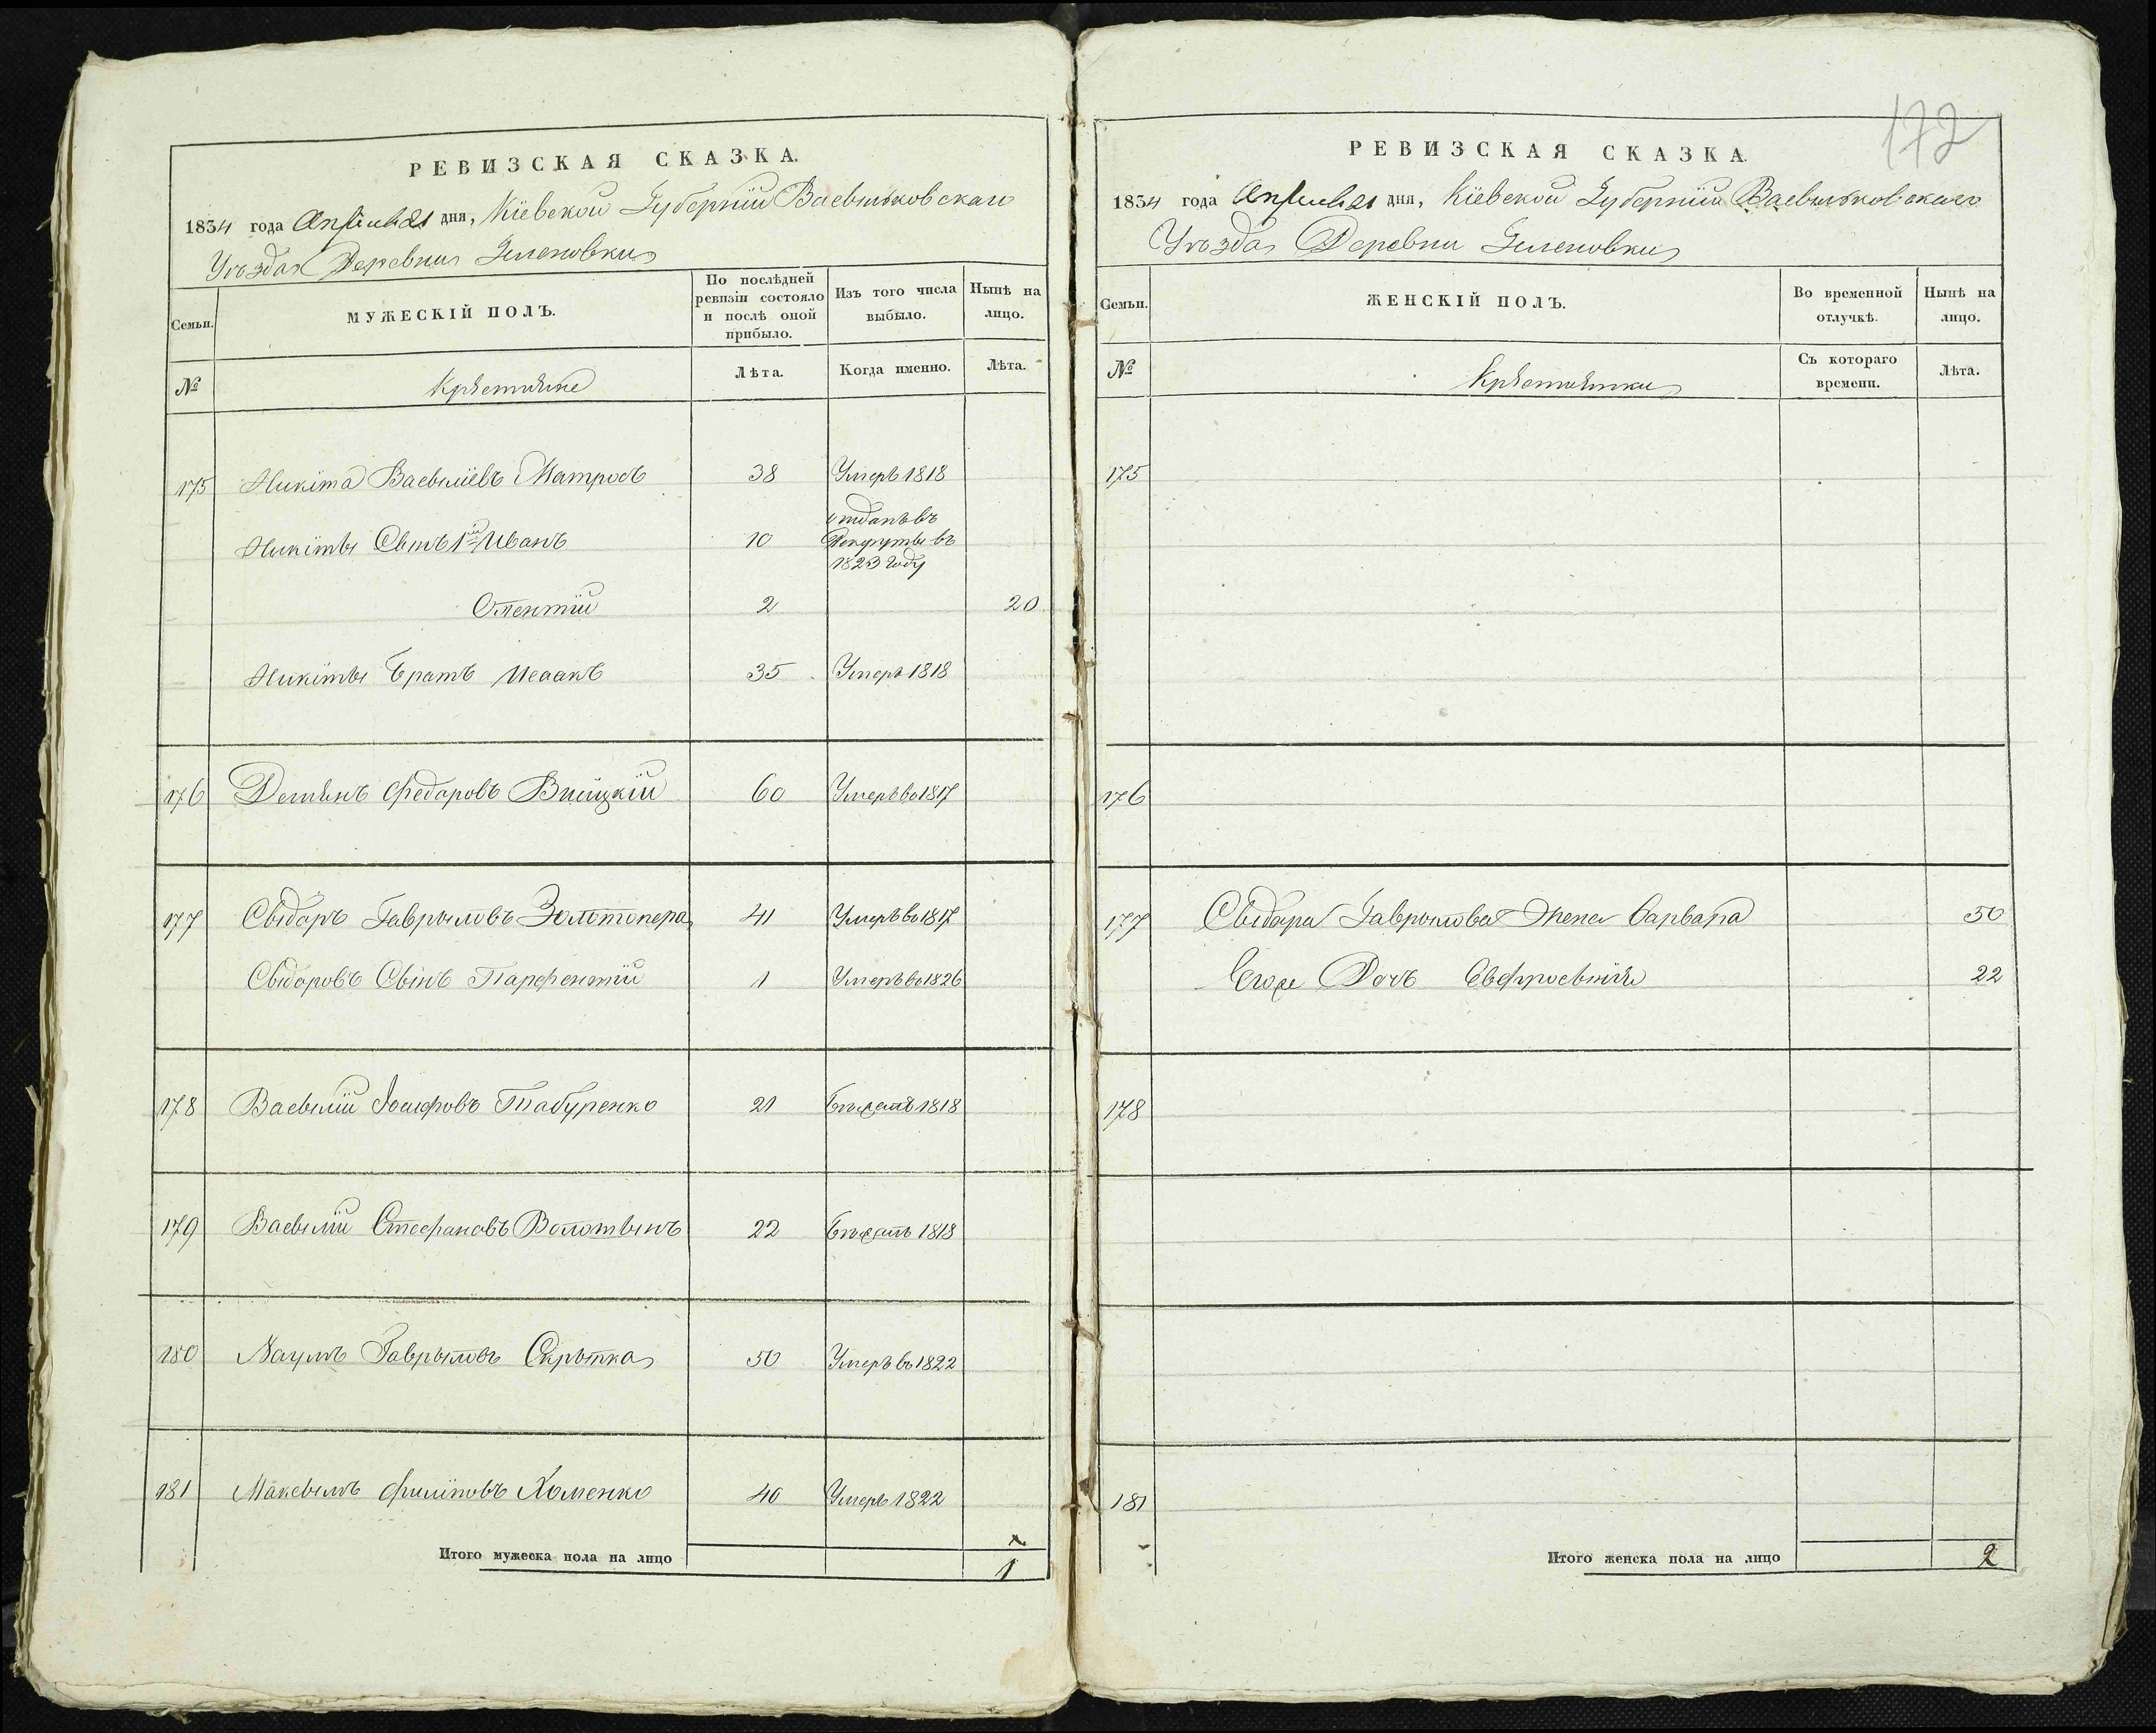 172
РЕВИЗСКАЯ СКАЗКА.
1834 года Апреля 21 дня, Кіевской Губерніи Васыльковскаго
Уѣзда Деревни Зеленовки
Семьи.
МУЖЕСКІЙ ПОЛЪ.
По послѣдней ревизіи состояло и послѣ оной прибыло.
Изъ того числа выбыло.
Нынѣ на лицо.
№
Крѣстяне
Лѣта.
Когда именно.
Лѣта.
175 Никіта Васыліевъ Матрось 38 Умеръ 1818
Никіты Сынъ 1й Иванъ 10 отданъ въ Рекруты въ 1823 году
Олентій 2 20
Никіты братъ Исаакъ 35 Умеръ 1818
176 Демянъ Федоровъ 60 Умеръ во 1817
177 Сыдоръ Гаврыловъ Золотопера 41 Умеръ во 1817
Сыдоровъ Сынъ Парфентій 1 Умеръ во 1826
178 Васылій Іосифовъ Табуренко 21 бѣжалъ 1818
179 Васылій Стефановъ Волотынъ 22 бѣжалъ 1818
180 Наумъ Гаврыловъ Скрыпка 50 Умеръ въ 1822
181 Максымъ Филіповъ Хоменко 40 Умеръ 1822
Итого мужеска пола на лицо 1
РЕВИЗСКАЯ СКАЗКА.
1834 года Апреля 21 дня, Кіевской Губерніи Васыльковскаго
Уѣзда Деревни Зеленовки
Семьи.
ЖЕНСКІЙ ПОЛЪ.
Во временной отлучкѣ.
Нынѣ на лицо.
№
Крѣстянки
Съ котораго времени.
Лѣта.
175
176
177 Сыдора Гаврылова Жена Варвара 50
Его же Дочь Евфросынія 22
178
181
Итого женска пола на лицо 2